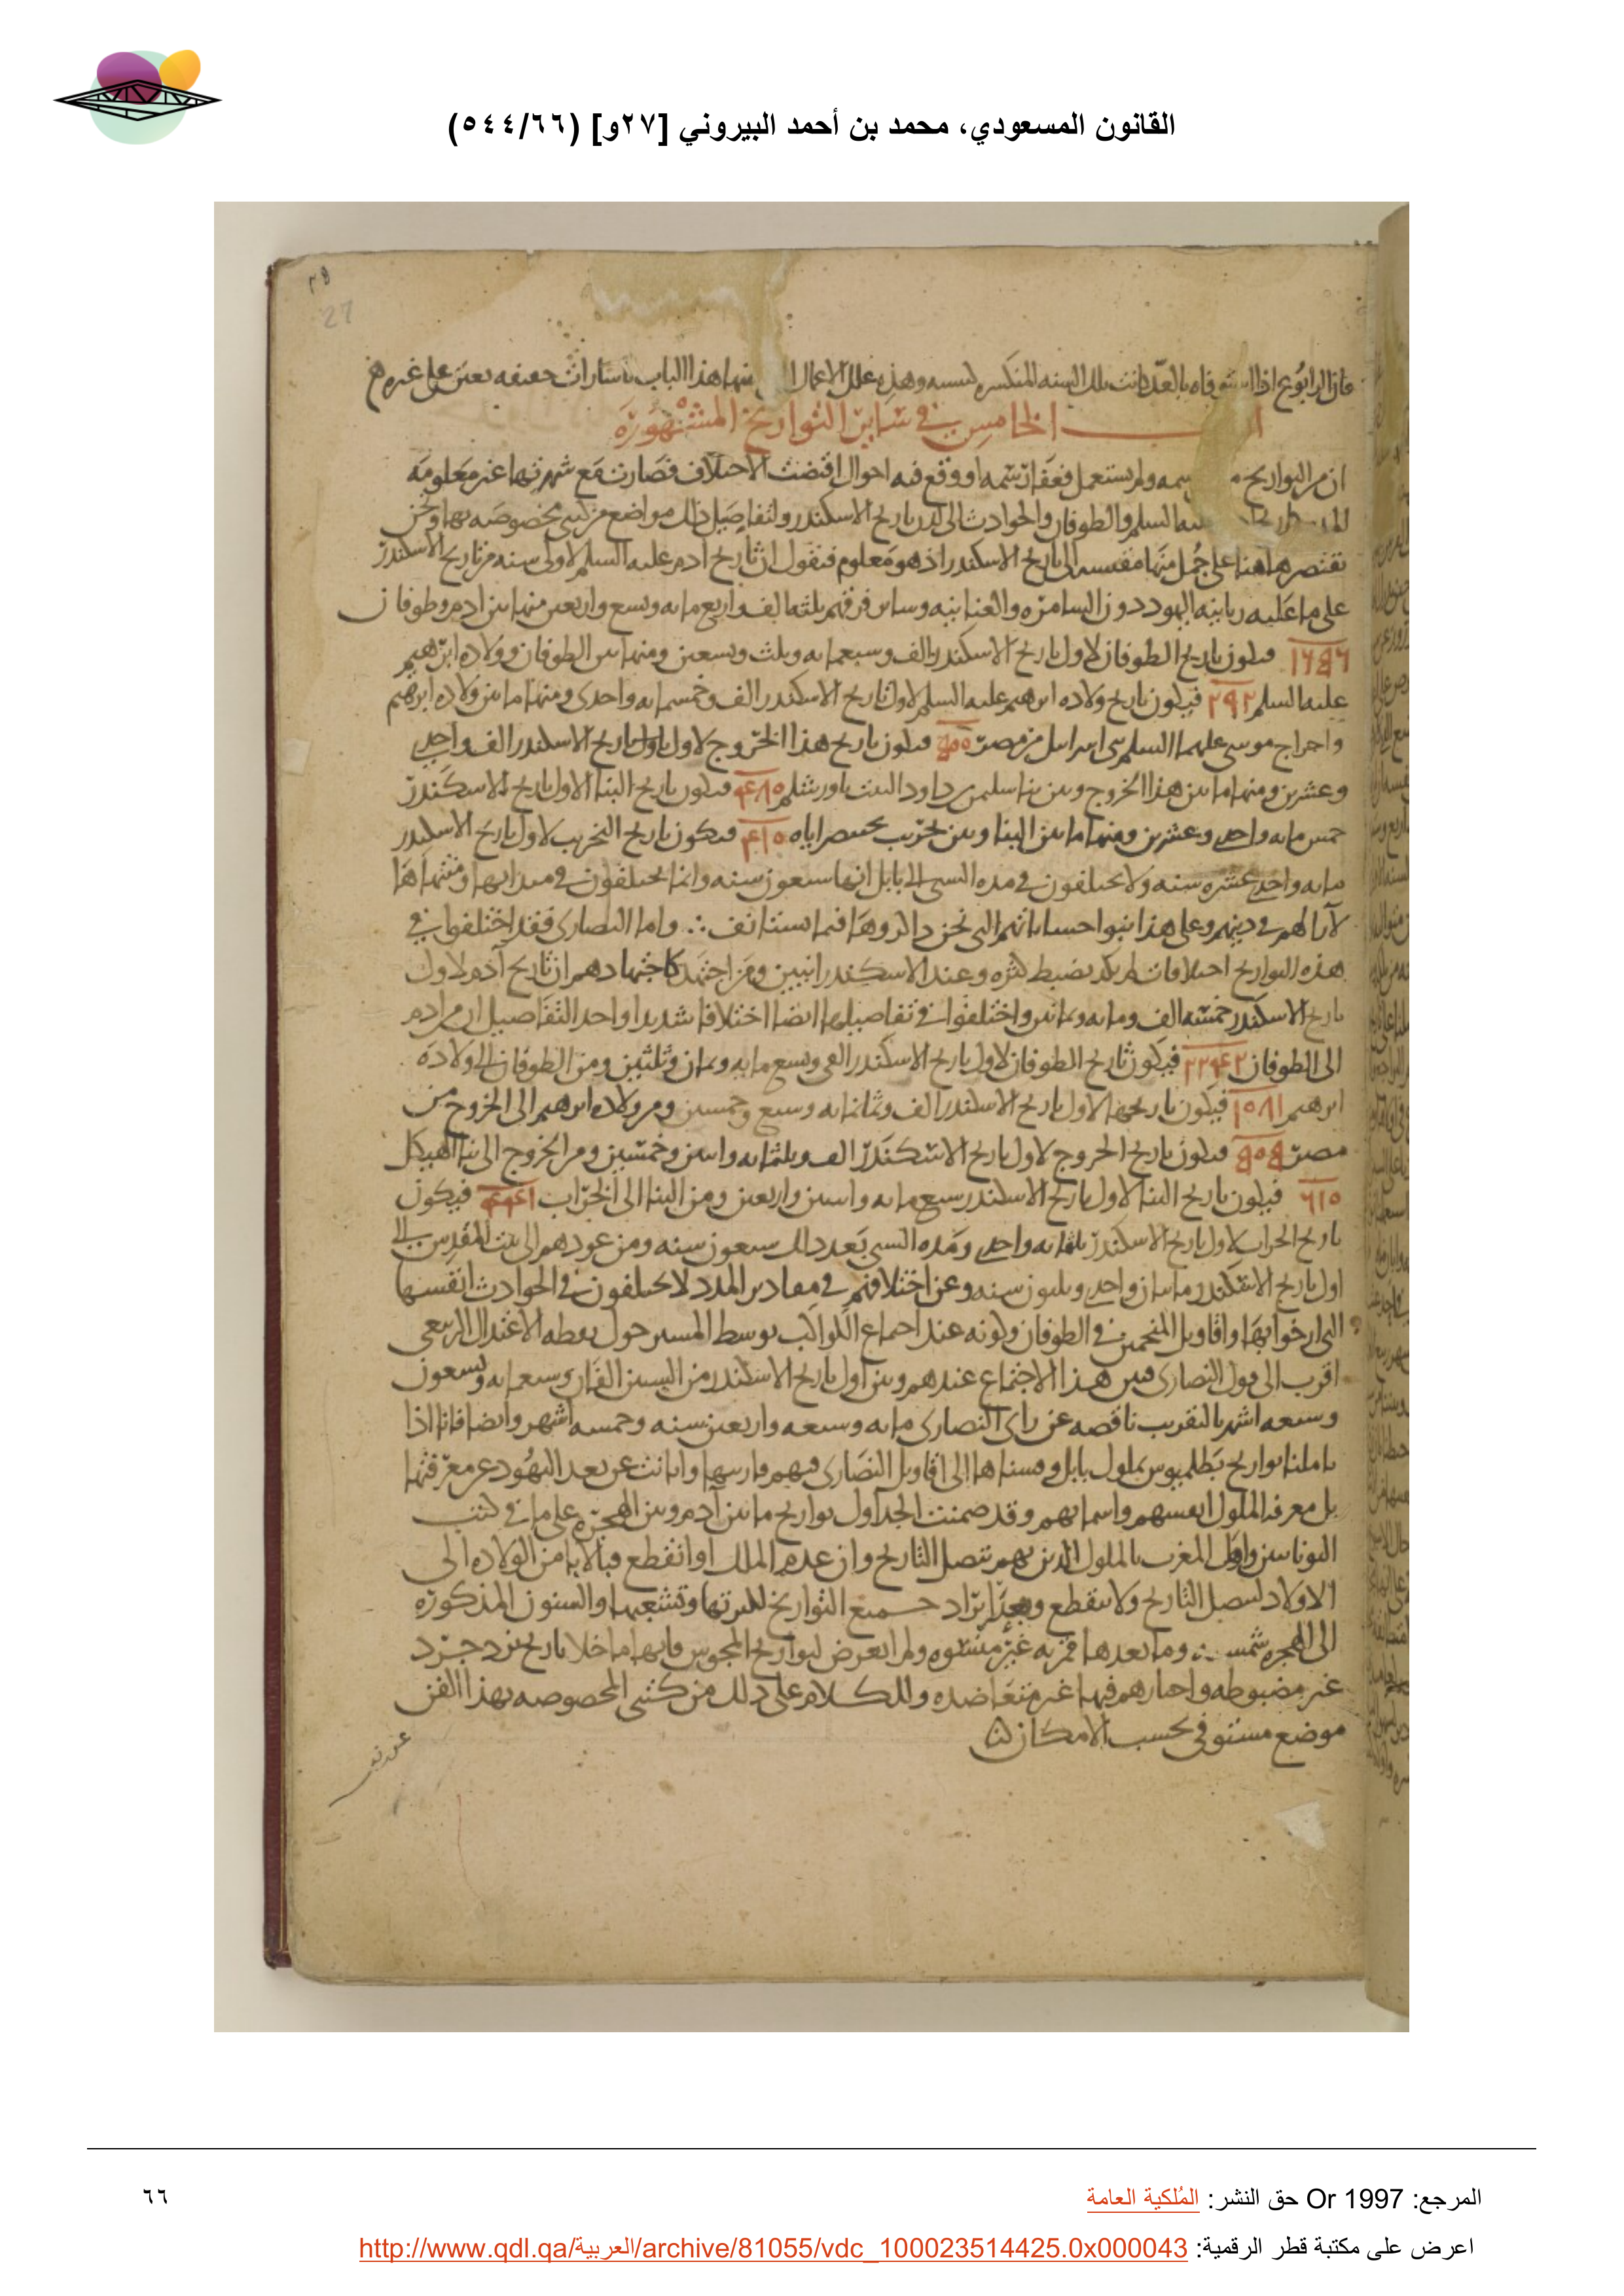 القانون المسعودي، محمد بن أحمد البيروني [٢٧و] (٥٤٤/٦٦)
٢٨
27
الخامس في سائر التواريخ المشهورة
ان من التواريخ ولم يستعمل فعفا رسمه او وقع فيه احوال اقتضت الاختلاف فصارت مع شهرتها غير معلومة
السلم والطوفان والحوادث الى لدن تاريخ الاسكندر ولتفاصيل ذلك مواضع من كتبي مخصوصه بها ونحن
نقتصر هاهنا على جمل منها مقيسه الى تاريخ الاسكندر اذ هو معلوم فنقول ان تاريخ ادم عليه السلم لاولى سنه من تاريخ الاسكندر
على ما عليه ربانيه اليهود دون السامره والعنانيه وسائر فرقهم ثلثه الف واربع مايه وتسع واربعين منها بين ادم وطوفان
١٦٥٦ فيكون تاريخ الطوفان لاول تاريخ الاسكندر الف وسبعمايه وثلث وتسعين ومنها بين الطوفان وولاده ابرهيم
عليه السلم ٢٩٢ فيكون تاريخ ولاده ابرهيم عليه السلم لاول تاريخ الاسكندر الف وخمسمايه واحدى ومنها ما بين ولاده ابرهيم
واخراج موسى عليهما السلم بني اسرايل من مصر ٥٠٠ فيكون تاريخ هذا الخروج لاول تاريخ الاسكندر الف واحدى
وعشرين ومنها ما بين هذا الخروج وبين بنا سليمن بن داود البيت باورشلم ٤٨٠ فيكون تاريخ البنا الاول تاريخ الاسكندر
خمس مايه واحدى وعشرين ومنها ما بين البنا وبين تخريب بختنصر اياه ٤١٠ فيكون تاريخ التخريب لاول تاريخ الاسكندر
مايه واحدى عشره سنه ولا يختلفون في مده السبي الى بابل انها سبعون سنه وانما يختلفون في مبداها ومنتهاها
لآنا لهم في دينهم وعلى هذا بنوا حساباتهم التي نحن ذاكروها فيما يستانف ∴ واما النصارى فقد اختلفوا في
هذه التواريخ اختلافات لم يكد يضبط لكثره وعند الاسكندرانيين ومن اجتهد كاجتهادهم ان تاريخ آدم لاول
تاريخ الاسكندر خمسه الف ومايه وثمانين واختلفوا في تفاصيلها ايضا اختلافا شديدا واحد التفاصيل ان من ادم
الى الطوفان ٢٢٤٢ فيكون تاريخ الطوفان لاول تاريخ الاسكندر الفي وتسع مايه وثمان وثلثين ومن الطوفان الى ولادة
ابرهيم ١٠٨١ فيكون تاريخها لاول تاريخ الاسكندر الف وثمانمايه وسبع وخمسين ومن ولاده ابرهيم الى الخروج من
مصر ٥٠٥ فيكون تاريخ الخروج لاول تاريخ الاسكندر الف وثلثمايه واثنين وخمسين ومن الخروج الى بنا الهيكل
٦١٠ فيكون تاريخ البنا لاول تاريخ الاسكندر سبع مايه واثنين واربعين ومن البنا الى الخراب ٤٤١ فيكون
تاريخ الخراب لاول تاريخ الاسكندر ثلثمايه واحدى ومده السبي بعد ذلك سبعون سنه ومن عودهم الى بيت المقدس الى
اول تاريخ الاسكندر مايتان واحدى وثلثون سنه وعن اختلافهم في مقادير المدد لا يختلفون في الحوادث انفسها
التي ارخوا بها واقاويل المنجمين في الطوفان وكونه عند اجتماع الكواكب بوسط المسير حول نقطه الاعتدال الربيعي
اقرب الى قول النصارى فبين هذا الاجتماع عندهم وبين اول تاريخ الاسكندر من السنين الفان وسبعمايه وتسعون
وسبعه اشهر بالتقريب ناقصه عن راى النصارى مايه وسبعه واربعين سنه وخمسه اشهر وايضا فانا اذا
تاملنا تواريخ بطلميوس بملوك بابل وقسناها الى اقاويل النصارى فيهم قاربها وانانت عن بعد اليهود عن معرفتها
بل معرفه الملوك انفسهم واسمائهم وقد ضمنت الجداول تواريخ ما بين آدم وبين الهجرة على ما في كتب
اليونانيين واهل المغرب بالملوك الذين بهم يتصل التاريخ وان عدم الملك او انقطع فبالابا من الولاده الى
الاولاد ليتصل التاريخ ولا ينقطع ايراد جميع التواريخ لكثرتها وتشعبها والسنون المذكورة
الى الهجره شمسيه وما بعدها قمريه غير مشوه ولم اتعرض لتواريخ المجوس فانها ما خلا تاريخ يزدجرد
غير مضبوطه واخبارهم فيها غير متعاضده وللكلام على ذلك من كتبي المخصوصه بهذا الفن
موضع مستوفى بحسب الامكان
المرجع: Or 1997 حق النشر: المُلكية العامة
٦٦
اعرض على مكتبة قطر الرقمية: http://www.qdl.qa/العربية/archive/81055/vdc_100023514425.0x000043